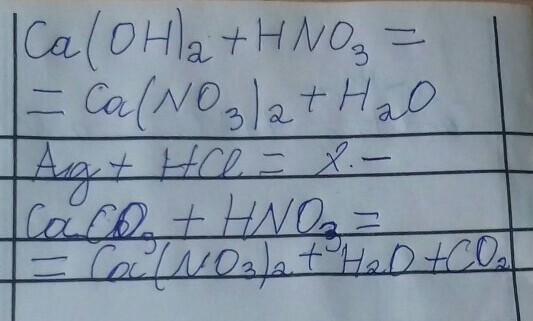 Ca(OH)₂ + HNO₃ =
= Ca(NO₃)₂ + H₂O
Ag + HCl = X. —
CaCO₃ + HNO₃ =
= Ca(NO₃)₂ + H₂O + CO₂